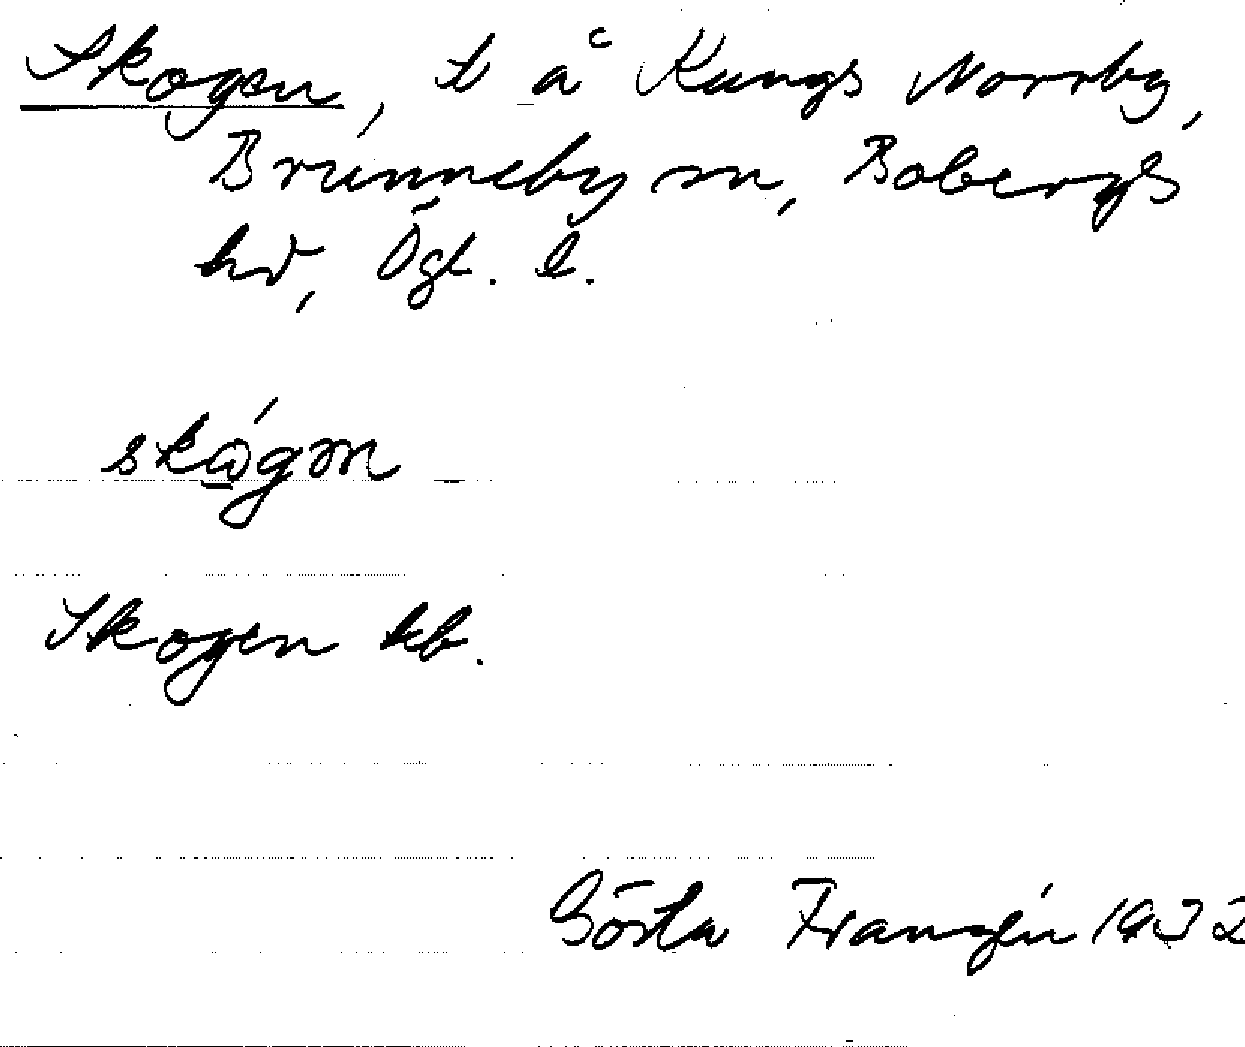 Skogen, t å Kungs Norrby,
Brunneby sn, Bobergs
hd, Ögl. l.
skɷ́gən
Skogen kb.
Gösta Franzén 1932